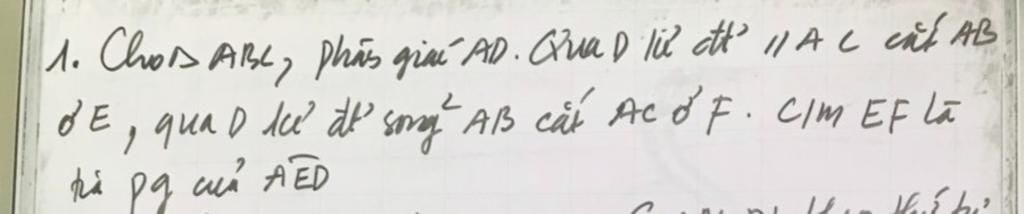 1. Cho Δ ABC, phân giác AD. Qua D kẻ đt // AC cắt AB
ở E, qua D kẻ đt song² AB cắt AC ở F. C/m EF là
tia pg của AED